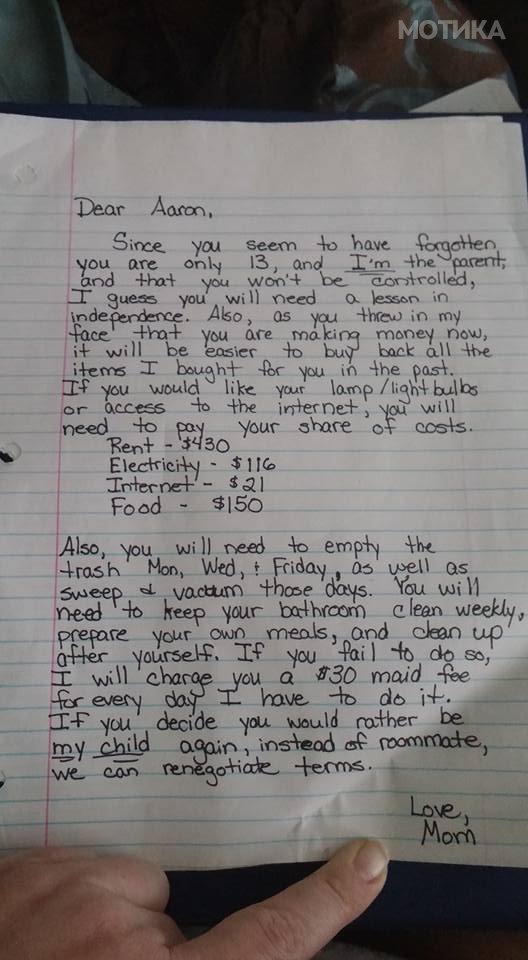 МОТИКА
Dear Aaron,
Since you seem to have forgotten,
you are only 13, and I'm the parent,
and that you won't be controlled,
I guess you will need a lesson in
independence. Also, as you threw in my
face that you are making money now,
it will be easier to buy back all the
items I bought for you in the past.
If you would like your lamp/light bulbs
or access to the internet, you will
need to pay your share of costs.
Rent - $430
Electricity - $116
Internet - $21
Food - $150
Also, you will need to empty the
trash Mon, Wed, + Friday, as well as
sweep & vacuum those days. You will
need to keep your bathroom clean weekly,
prepare your own meals, and clean up
after yourself. If you fail to do so,
I will charge you a $30 maid fee
for every day I have to do it.
If you decide you would rather be
my child again, instead of roommate,
we can renegotiate terms.
Love,
Mom